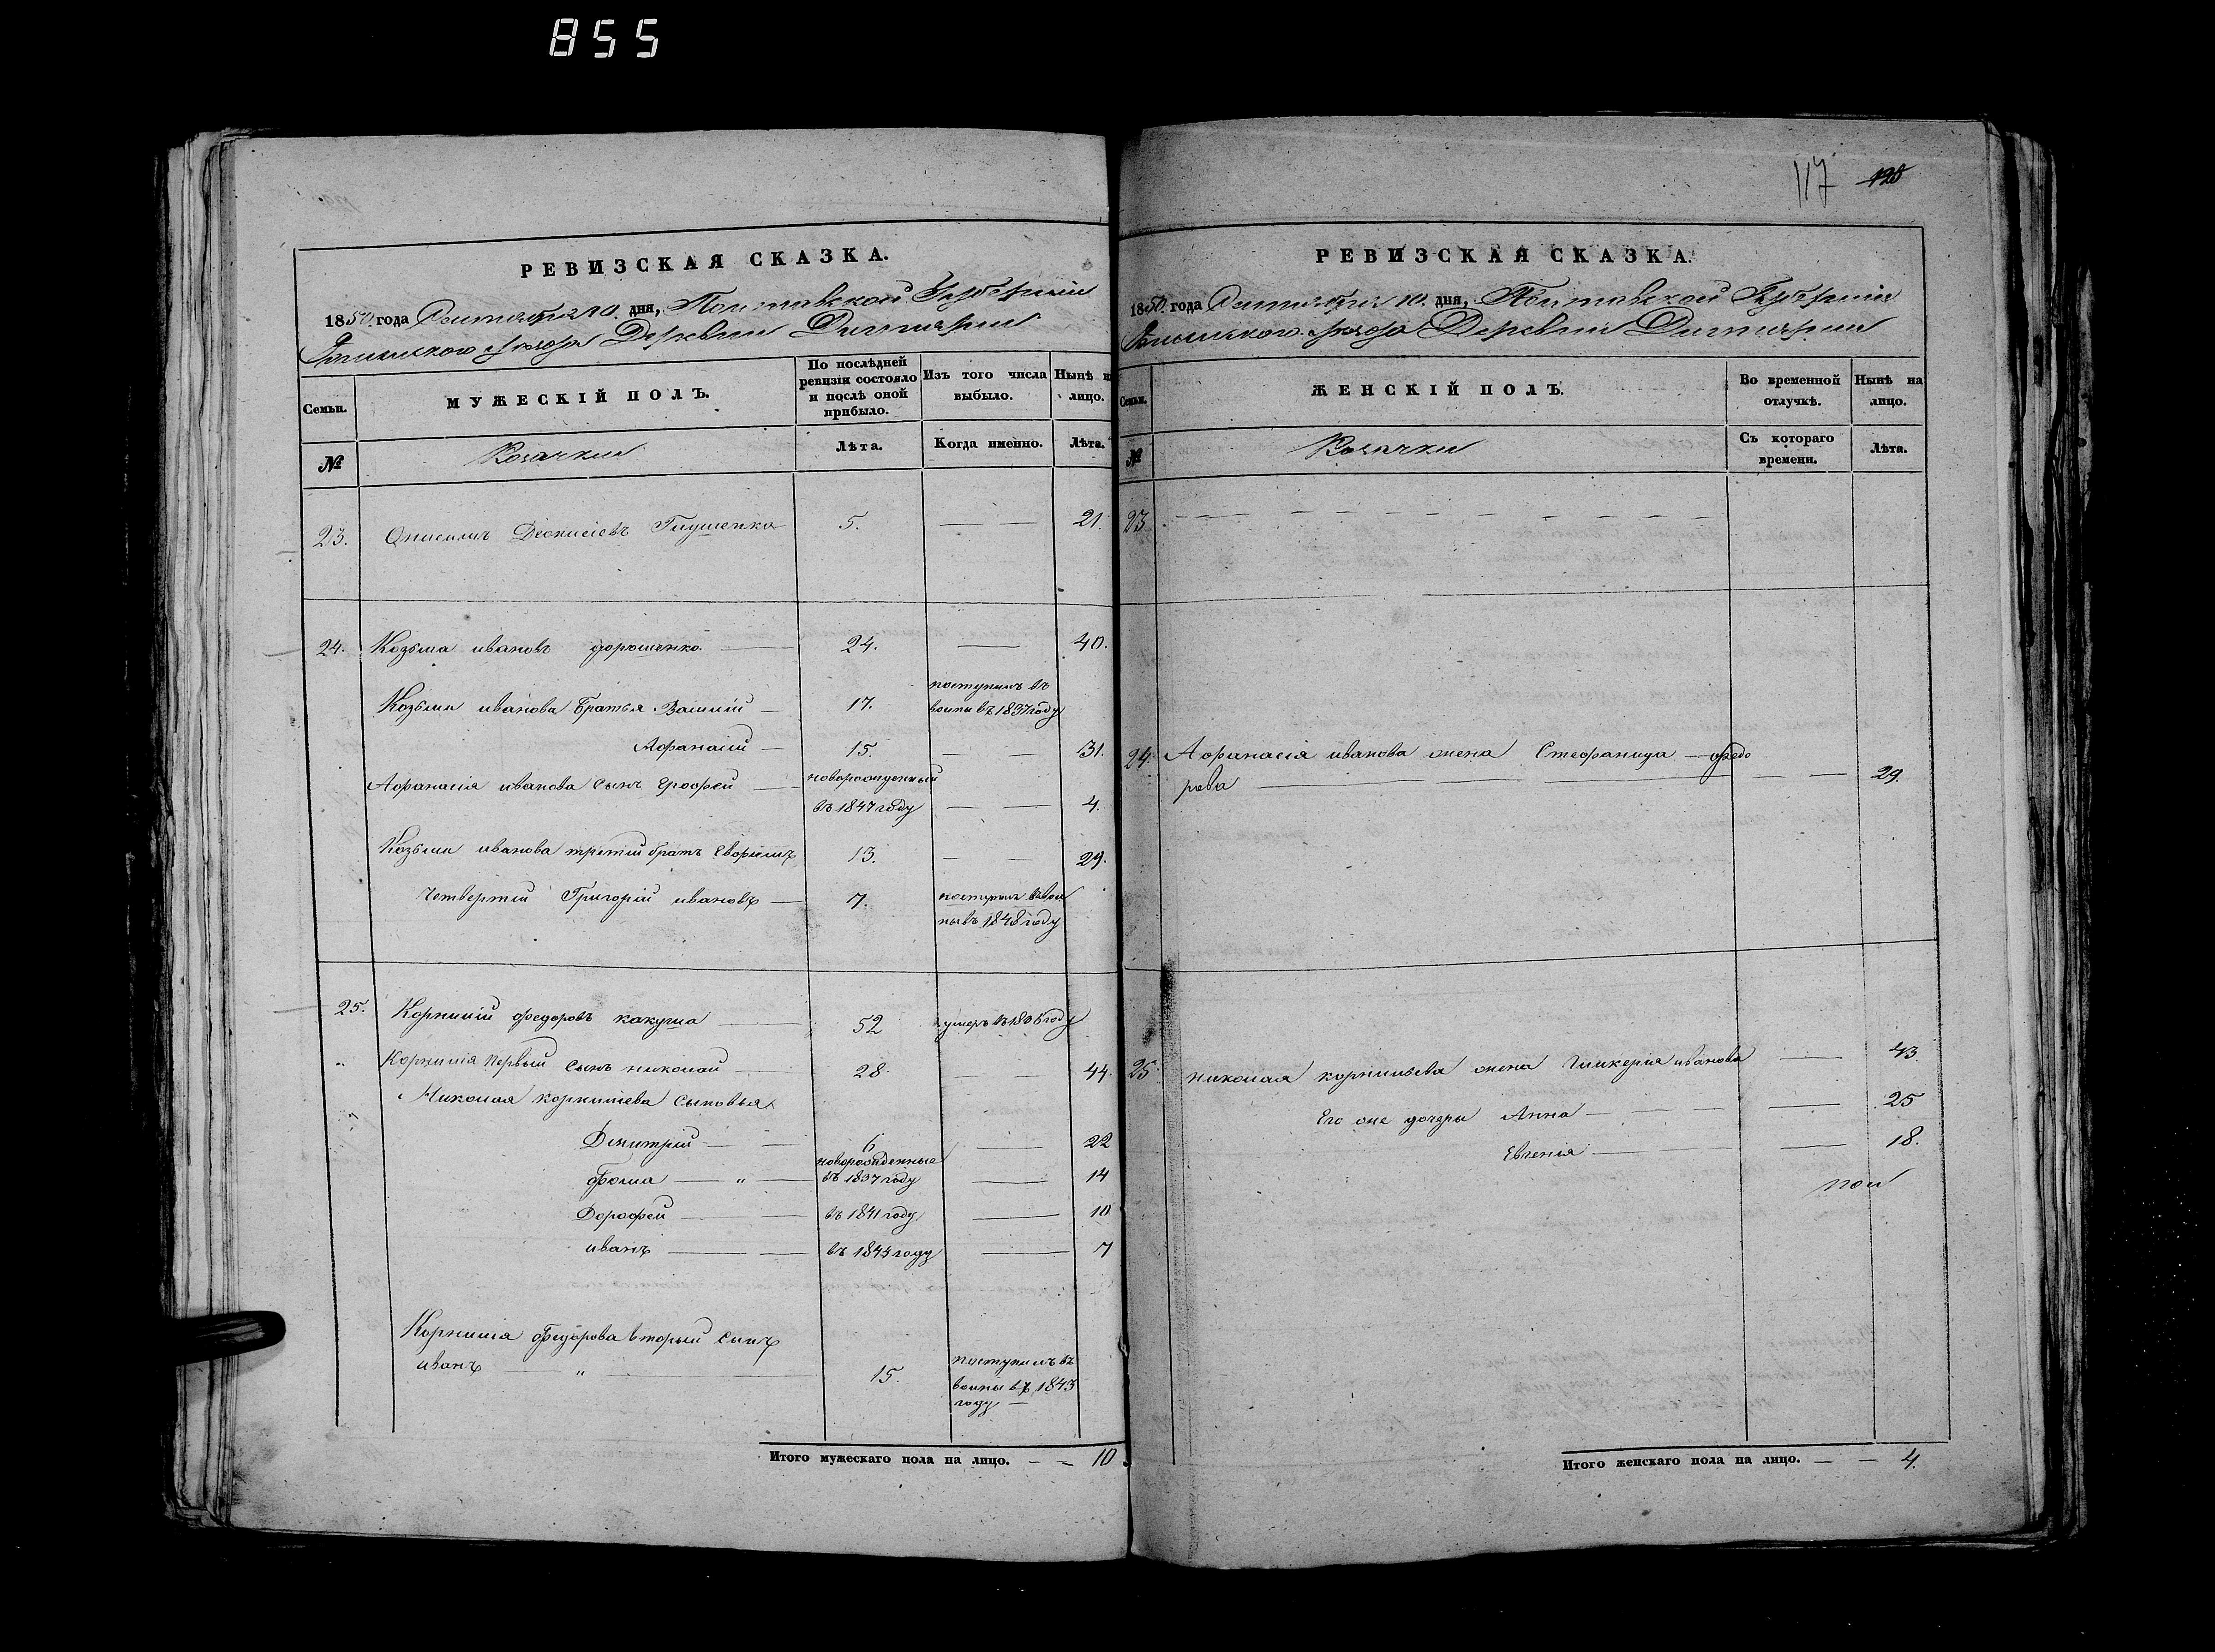 855
117 128
РЕВИЗСКАЯ СКАЗКА.
1850 года Сентября 10. дня, Полтавской Губернии
уезда Деревни
Семьи.
МУЖЕСКІЙ ПОЛЪ.
По послѣдней ревизіи состояло и послѣ оной прибыло.
Изъ того числа выбыло.
Нынѣ н лицо.
№
Козачки
Лѣта.
Когда именно.
Лѣта.
23. Онисимъ Діонисіевъ 5. — 21.
24. Козьма ивановъ дорошенко — 24. — 40.
поступилъ въ
Козьмы иванова братья Василій — 17. воины въ 1837 году
Афанасій — 15. — — 31.
Афанасія иванова сынъ Ерофей — новорожденный
въ 1847 году — — 4.
Козьмы иванова третій братъ Ефримъ 13. — — 29.
Четвертій Григорій ивановъ — 7. поступилъ въ вои
ны въ 1848 году
25. Корнилій федоровъ какуша — 52 умеръ въ году
Корнилія Первый сынъ николай — 28. — 44.
Николая корнилиева сыновья
Димитрій — — 6 — 22
новорожденные
фома — „ — въ 1837 году — 14
Дорофей — въ 1841 году — 10
иванъ — — въ 1844 году — 7
Корнилія Федорова вторый сынъ
иванъ — „ — 15. поступилъ въ
воины въ 1843
году —
Итого мужескаго пола на лицо. — — 10
РЕВИЗСКАЯ СКАЗКА.
1850 года Сентября 10. дня, Полтавской Губерніи
уезда Деревни
Семьи.
ЖЕНСКІЙ ПОЛЪ.
Во временной отлучкѣ.
Нынѣ на лицо.
№
Козачки
Съ котораго времени.
Лѣта.
23 — — — — — — — —
24. Афанасія иванова жена Стефанида — федо
рова — — 29.
25. николая корнильева жена Гликерія иванова — 43.
Его же дочеры Анна — — 25
Евгенія — — 18.
Итого женскаго пола на лицо. — — 4.